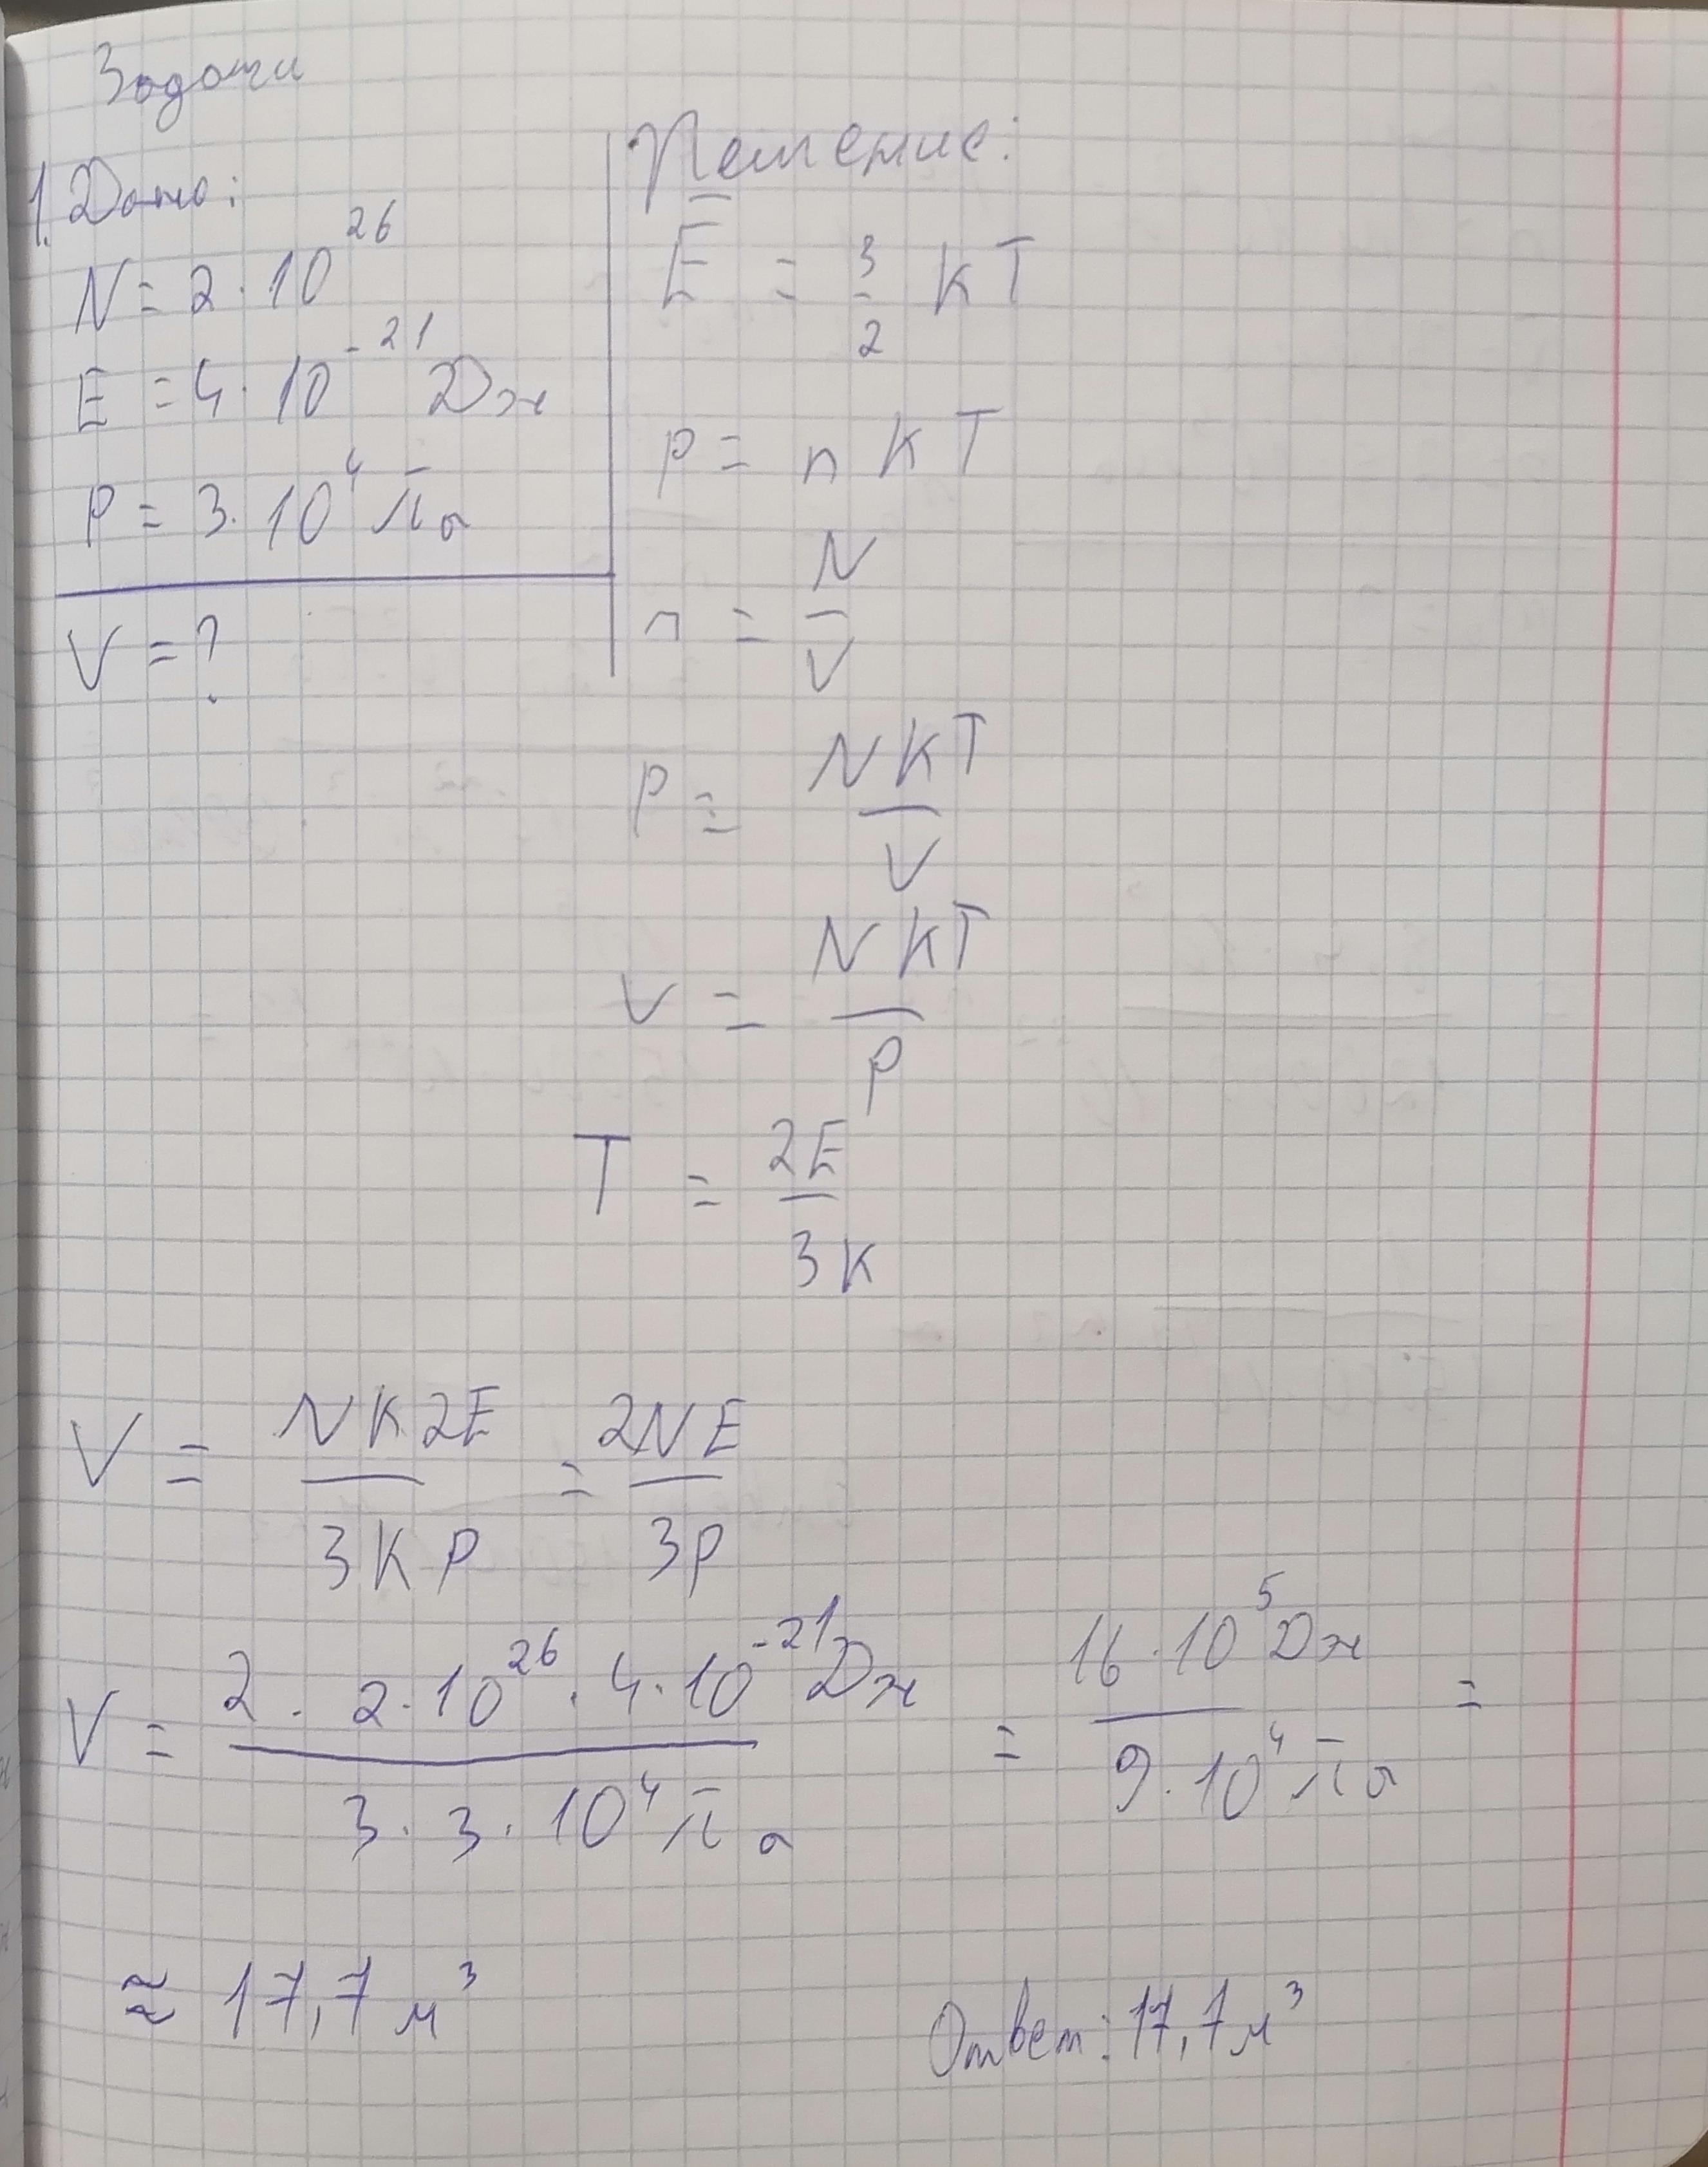 Задачи
1. Дано:
N = 2 · 10²⁶
E = 4 · 10⁻²¹ Дж
P = 3 · 10⁴ Па
V = ?
Решение:
E̅ = 3/2 kT
p = n k T
n = N/V
P = NKT/V
V = NKT/P
T = 2E/3K
V = NK2E/3KP = 2NE/3P
V = 2 · 2 · 10²⁶ · 4 · 10⁻²¹ Дж / 3 · 3 · 10⁴ Па = 16 · 10⁵ Дж / 9 · 10⁴ Па =
≈ 17,7 м³
Ответ: 17,7 м³